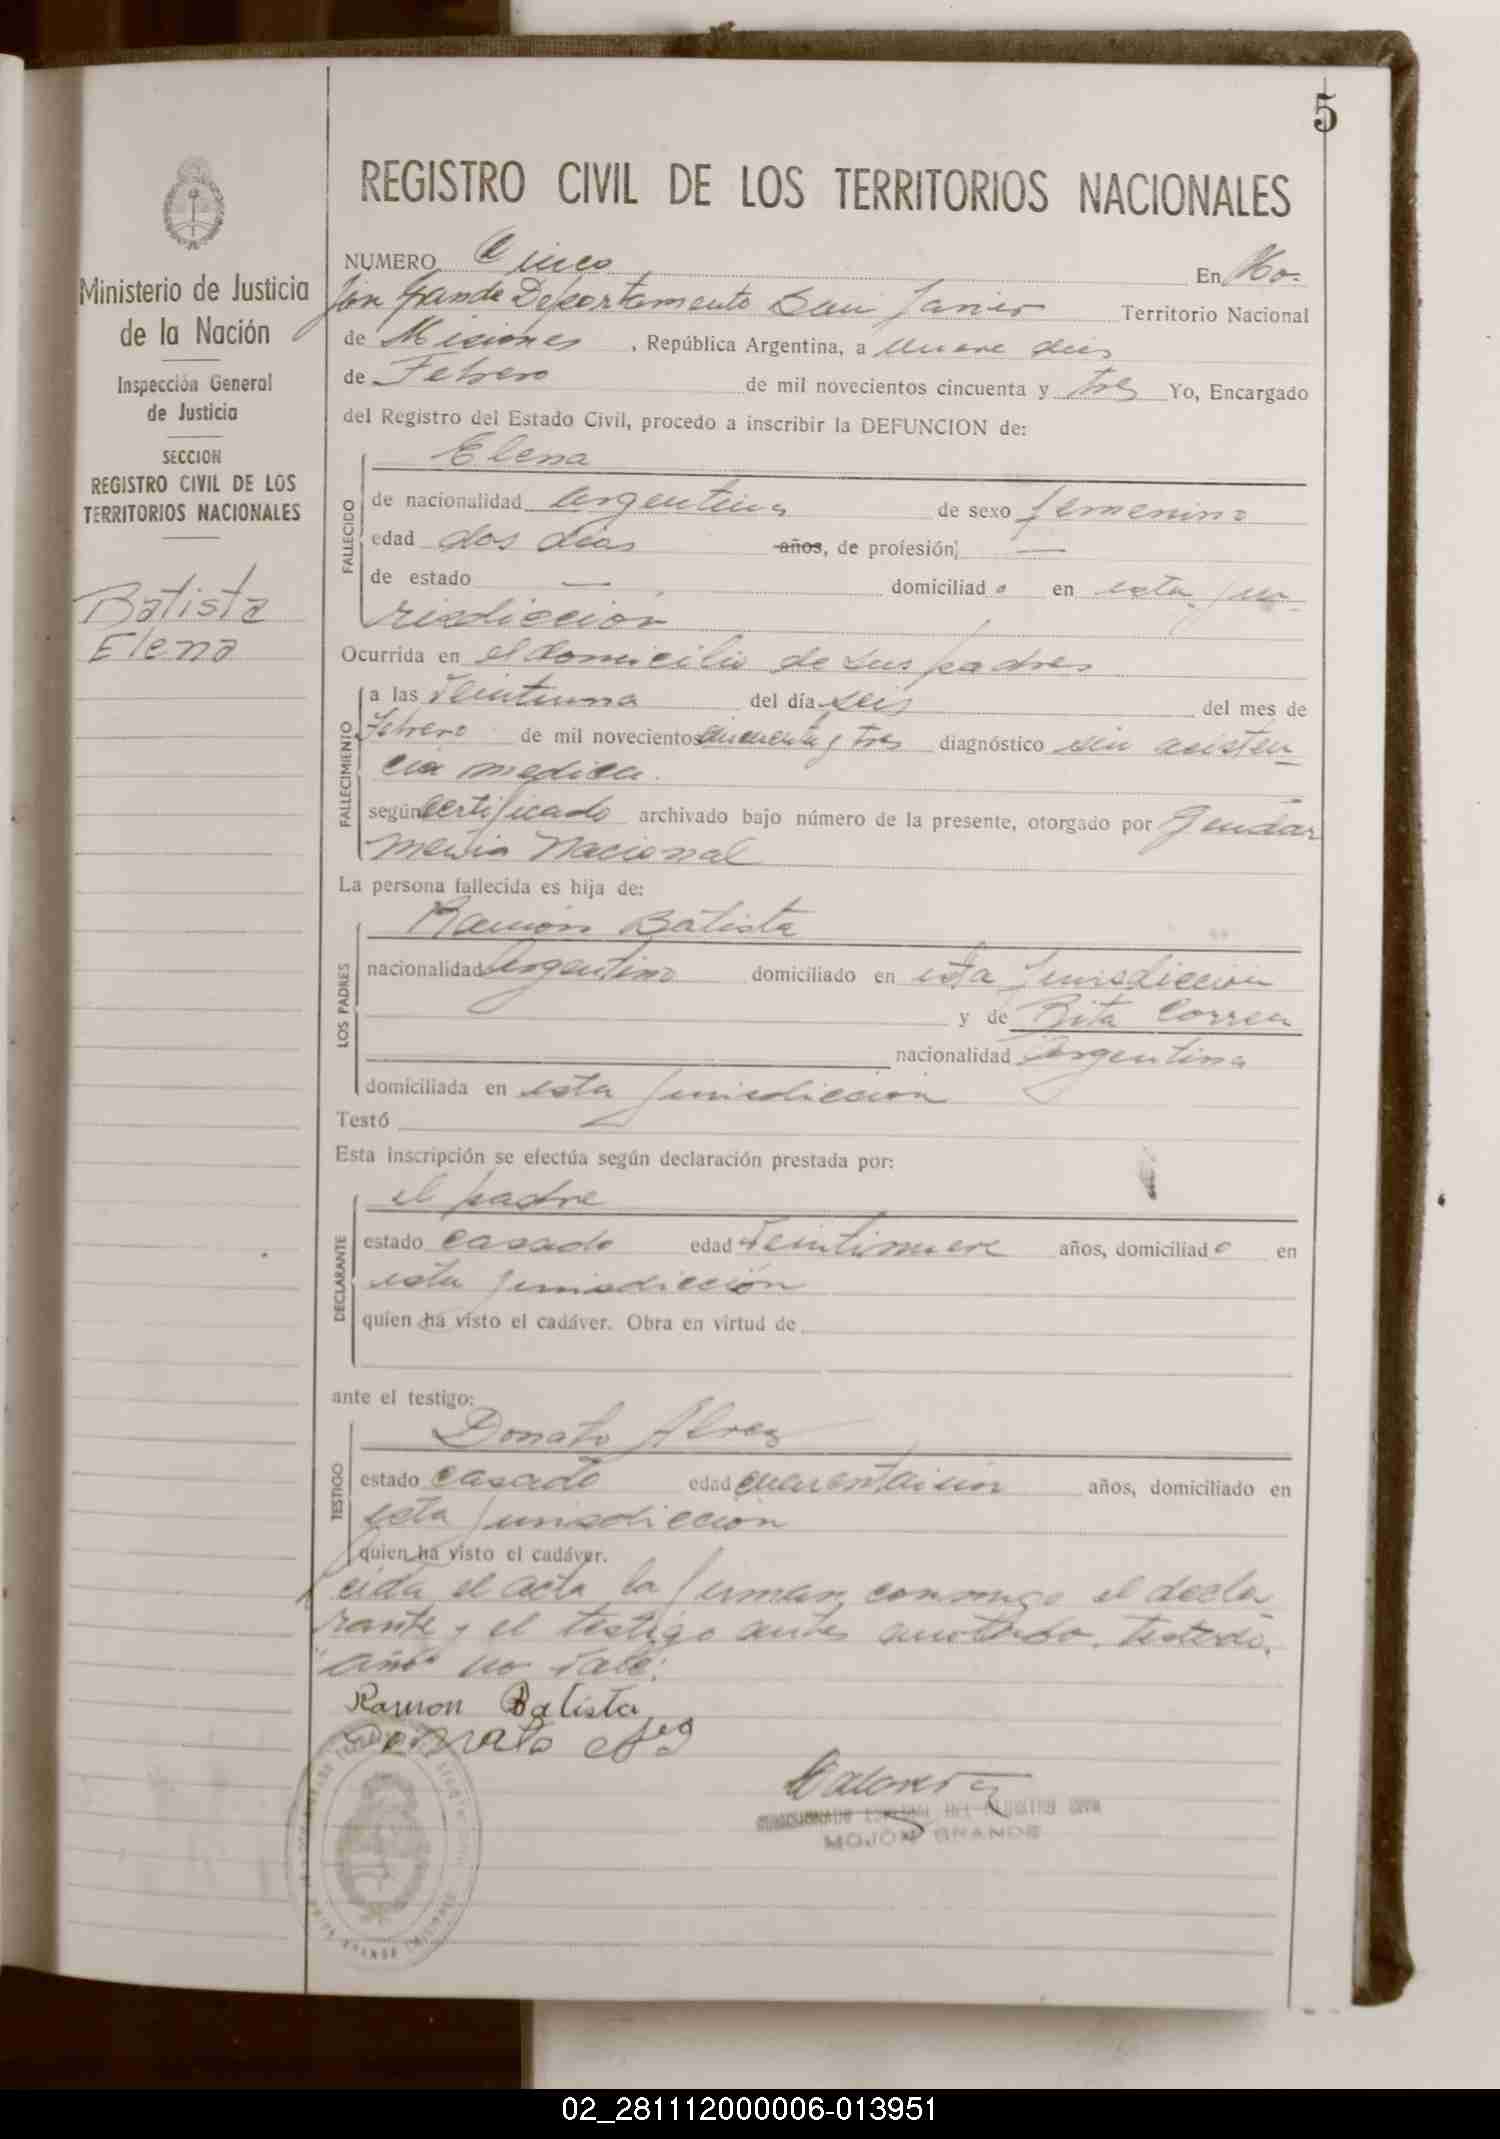 5
REGISTRO CIVIL DE LOS TERRITORIOS NACIONALES
Ministerio de Justicia
de la Nación
Inspección General
de Justicia
SECCION
REGISTRO CIVIL DE LOS
TERRITORIOS NACIONALES
Batista
Elena
NUMERO Cinco En Mo-
jón Grande Departamento San Javier Territorio Nacional
de Misiones, República Argentina, a nueve dias
de Febrero de mil novecientos cincuenta y tres Yo, Encargado
del Registro del Estado Civil, procedo a inscribir la DEFUNCION de:
Elena
FALLECIDO
de nacionalidad argentina de sexo femenino
edad dos dias años, de profesión, —
de estado — domiciliado en esta ju-
risdicción
Ocurrida en el domicilio de sus padres
FALLECIMIENTO
a las veintiuna del día seis del mes de
febrero de mil novecientos cincuenta y tres diagnóstico sin asisten-
cia medica.
según certificado archivado bajo número de la presente, otorgado por Gendar
meria Nacional
La persona fallecida es hija de:
LOS PADRES
Ramón Batista
nacionalidad Argentino domiciliado en esta jurisdicción
y de Rita Correa
nacionalidad Argentina
domiciliada en esta jurisdicción
Testó
Esta inscripción se efectúa según declaración prestada por:
DECLARANTE
el padre
estado casado edad veintinueve años, domiciliado en
esta jurisdicción
quien ha visto el cadáver. Obra en virtud de
ante el testigo:
TESTIGO
Donato Alvez
estado casado edad cuarentaiun años, domiciliado en
esta jurisdicción
quien ha visto el cadáver.
Leida el acta la firman conmigo el decla
rante y el testigo antes anotado. Testado:
"años" no vale.
Ramon Batista
Donato
MOJON GRANDE
02_281112000006-013951